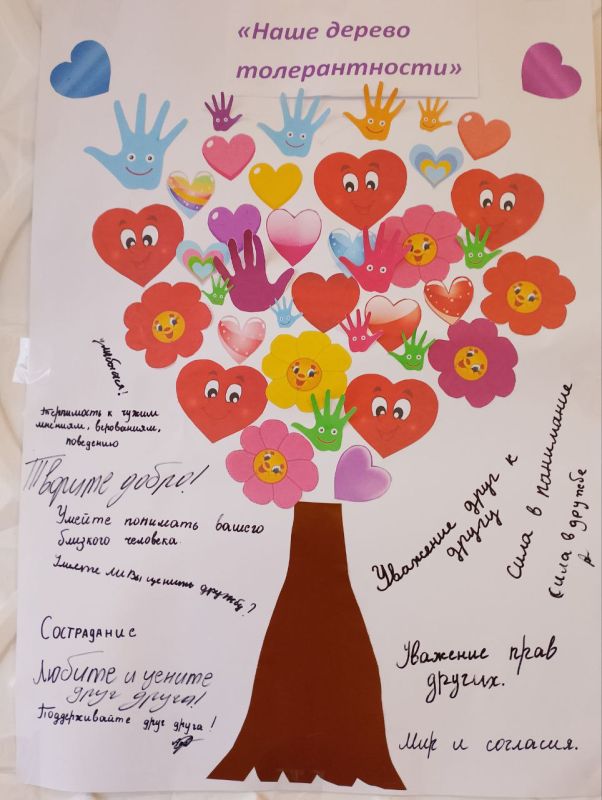 «Наше дерево
толерантности»
улыбнись!
Терпимость к чужим
мнениям, верованиям,
поведению
Творите добро!
Умейте понимать вашего
близкого человека
Умеете ли Вы ценить дружбу?
Сострадание
Любите и цените
друг друга!
Поддерживайте друг друга!
Уважение друг к
другу
Сила в понимание
Сила в дружбе
Уважение прав
других.
Мир и согласия.